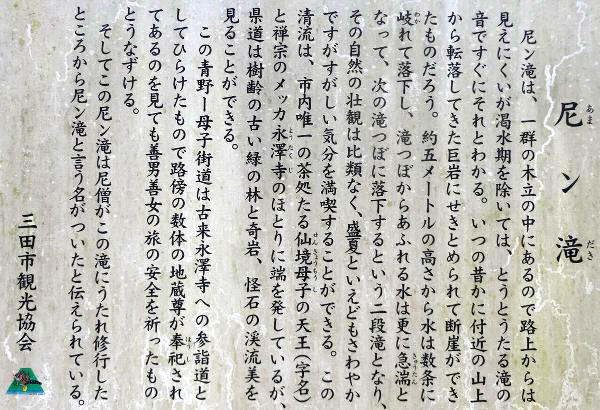 尼ン滝
あま だき
尼ン滝は、一群の木立の中にあるので路上からは
見えにくいが渇水期を除いては、とうとうたる滝の
音ですぐにそれとわかる。いつの昔かに付近の山上
から転落してきた巨岩にせきとめられて断崖ができ
たものだろう。約五メートルの高さから水は数条に
岐れて落下し、滝つぼからあふれる水は更に急湍と
わか きゅうたん
なって、次の滝つぼに落下するという二段滝となり、
その自然の壮観は比類なく、盛夏といえどもさわやか
ですがすがしい気分を満喫することができる。この
清流は、市内唯一の茶処たる仙境母子の天王(字名)
せんきょうもうし
と禅宗のメッカ永澤寺のほとりに端を発しているが、
ようたくじ
県道は樹齢の古い緑の林と奇岩、怪石の渓流美を
見ることができる。
この青野ー母子街道は古来永澤寺への参詣道と
してひらけたもので路傍の数体の地蔵尊が奉祀され
ほうし
てあるのを見ても善男善女の旅の安全を祈ったもの
とうなずける。
そしてこの尼ン滝は尼僧がこの滝にうたれ修行した
ところから尼ン滝と言う名がついたと伝えられている。
三田市観光協会